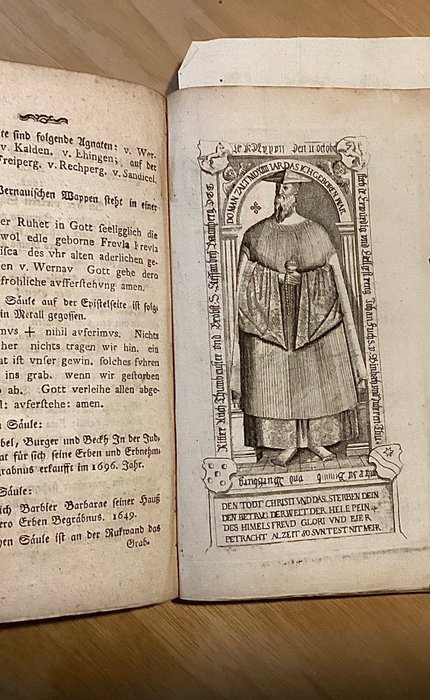 te sind folgende Agnaten: v. Wer.
v. Kalden. v. Ehingen; auf der
Freiperg. v. Rechperg. v. Sandicel.
Bernauischen Wappen steht in einer
er Ruhet in Gott seeligglich die
wol edle geborne Frevla Frevla
isca des vhr alten aderlichen ge-
en v. Wernav Gott gebe dero
fröhliche avfferstehvng amen.
Säule auf der Epistelseite ist folg.
in Metall gegossen.
imvs + nihil avferimvs. Nichts
her nichts tragen wir hin. ein
at ist vnser gewin. solches fvhren
ins grab. wenn wir gestorben
ab. Gott verleihe allen abge-
l: avferstehe: amen.
Säule:
bel, Burger und Beckh In der Jud.
at für sich seine Erben und Erbnehm.
egräbnus erkaufft im 1696. Jahr.
Säule:
ich Barbier Barbarae seiner Hauß
ero Erben Begräbnus. 1649.
hen Säule ist an der Rukwand das
Grab.
DO MAN ZALT
IAR DAS ICH GEBORN WAR
den 11 octob
Ritter Auch Thumbhauser und Probst S. Steffan bey Bamberg
und Wurtzburg
DEN TODT CHRISTI VND DAS STERBEN DEIN
DEN BETRUG DER WELT DER HELE PEIN
DES HIMELS FREVD GLORI VND EIER
PETRACHT ALZEIT SO SVNTEST NIT MEHR